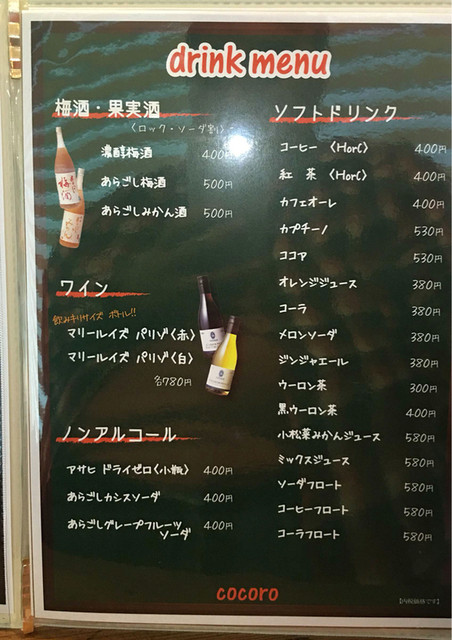 drink menu
梅酒・果実酒
〈ロック・ソーダ割〉
濃醇梅酒 400円
あらごし梅酒 500円
あらごしみかん酒 500円
ワイン
飲みキリサイズ ボトル!!
マリールイズ パリゾ〈赤〉
マリールイズ パリゾ〈白〉
各780円
ノンアルコール
アサヒ ドライゼロ〈小瓶〉 400円
あらごしカシスソーダ 400円
あらごしグレープフルーツ
ソーダ 400円
ソフトドリンク
コーヒー 〈HorC〉 400円
紅 茶 〈HorC〉 400円
カフェオーレ 400円
カプチーノ 530円
ココア 530円
オレンジジュース 380円
コーラ 380円
メロンソーダ 380円
ジンジャエール 380円
ウーロン茶 300円
黒ウーロン茶 400円
小松菜みかんジュース 580円
ミックスジュース 580円
ソーダフロート 580円
コーヒーフロート 580円
コーラフロート 580円
cocoro
【内税価格です】